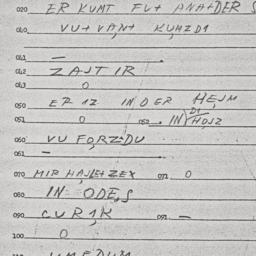 020 ER KUMT FUT ANATDER S
030 VUT VANT KUMZDI
041 —
042 ZAJTIR
043 O
050 ER IZ IN DER HEJM
051 O 052. IN DI HOJZ
060 VU FORZDU
061 —
070 MIR HAJLETZEX 071 O
080 IN ODES
090 CURIK 091 —
100 O